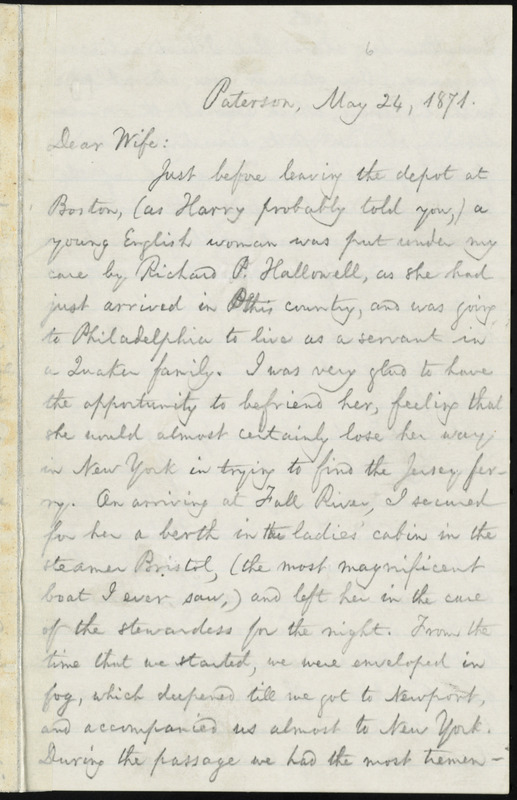 6
Paterson, May 24, 1871.
Dear Wife:
Just before leaving the depot at
Boston, (as Harry probably told you,) a
young English woman was put under my
care by Richard P. Hallowell, as she had
just arrived in this country, and was going
to Philadelphia to live as a servant in
a Quaker family. I was very glad to have
the opportunity to befriend her, feeling that
she would almost certainly lose her way
in New York in trying to find the Jersey fer-
ry. On arriving at Fall River, I secured
for her a berth in the ladies' cabin in the
steamer Bristol, (the most magnificent
boat I ever saw,) and left her in the care
of the stewardess for the night. From the
time that we started, we were enveloped in
fog, which deepened till we got to Newport,
and accompanied us almost to New York.
During the passage we had the most tremen-